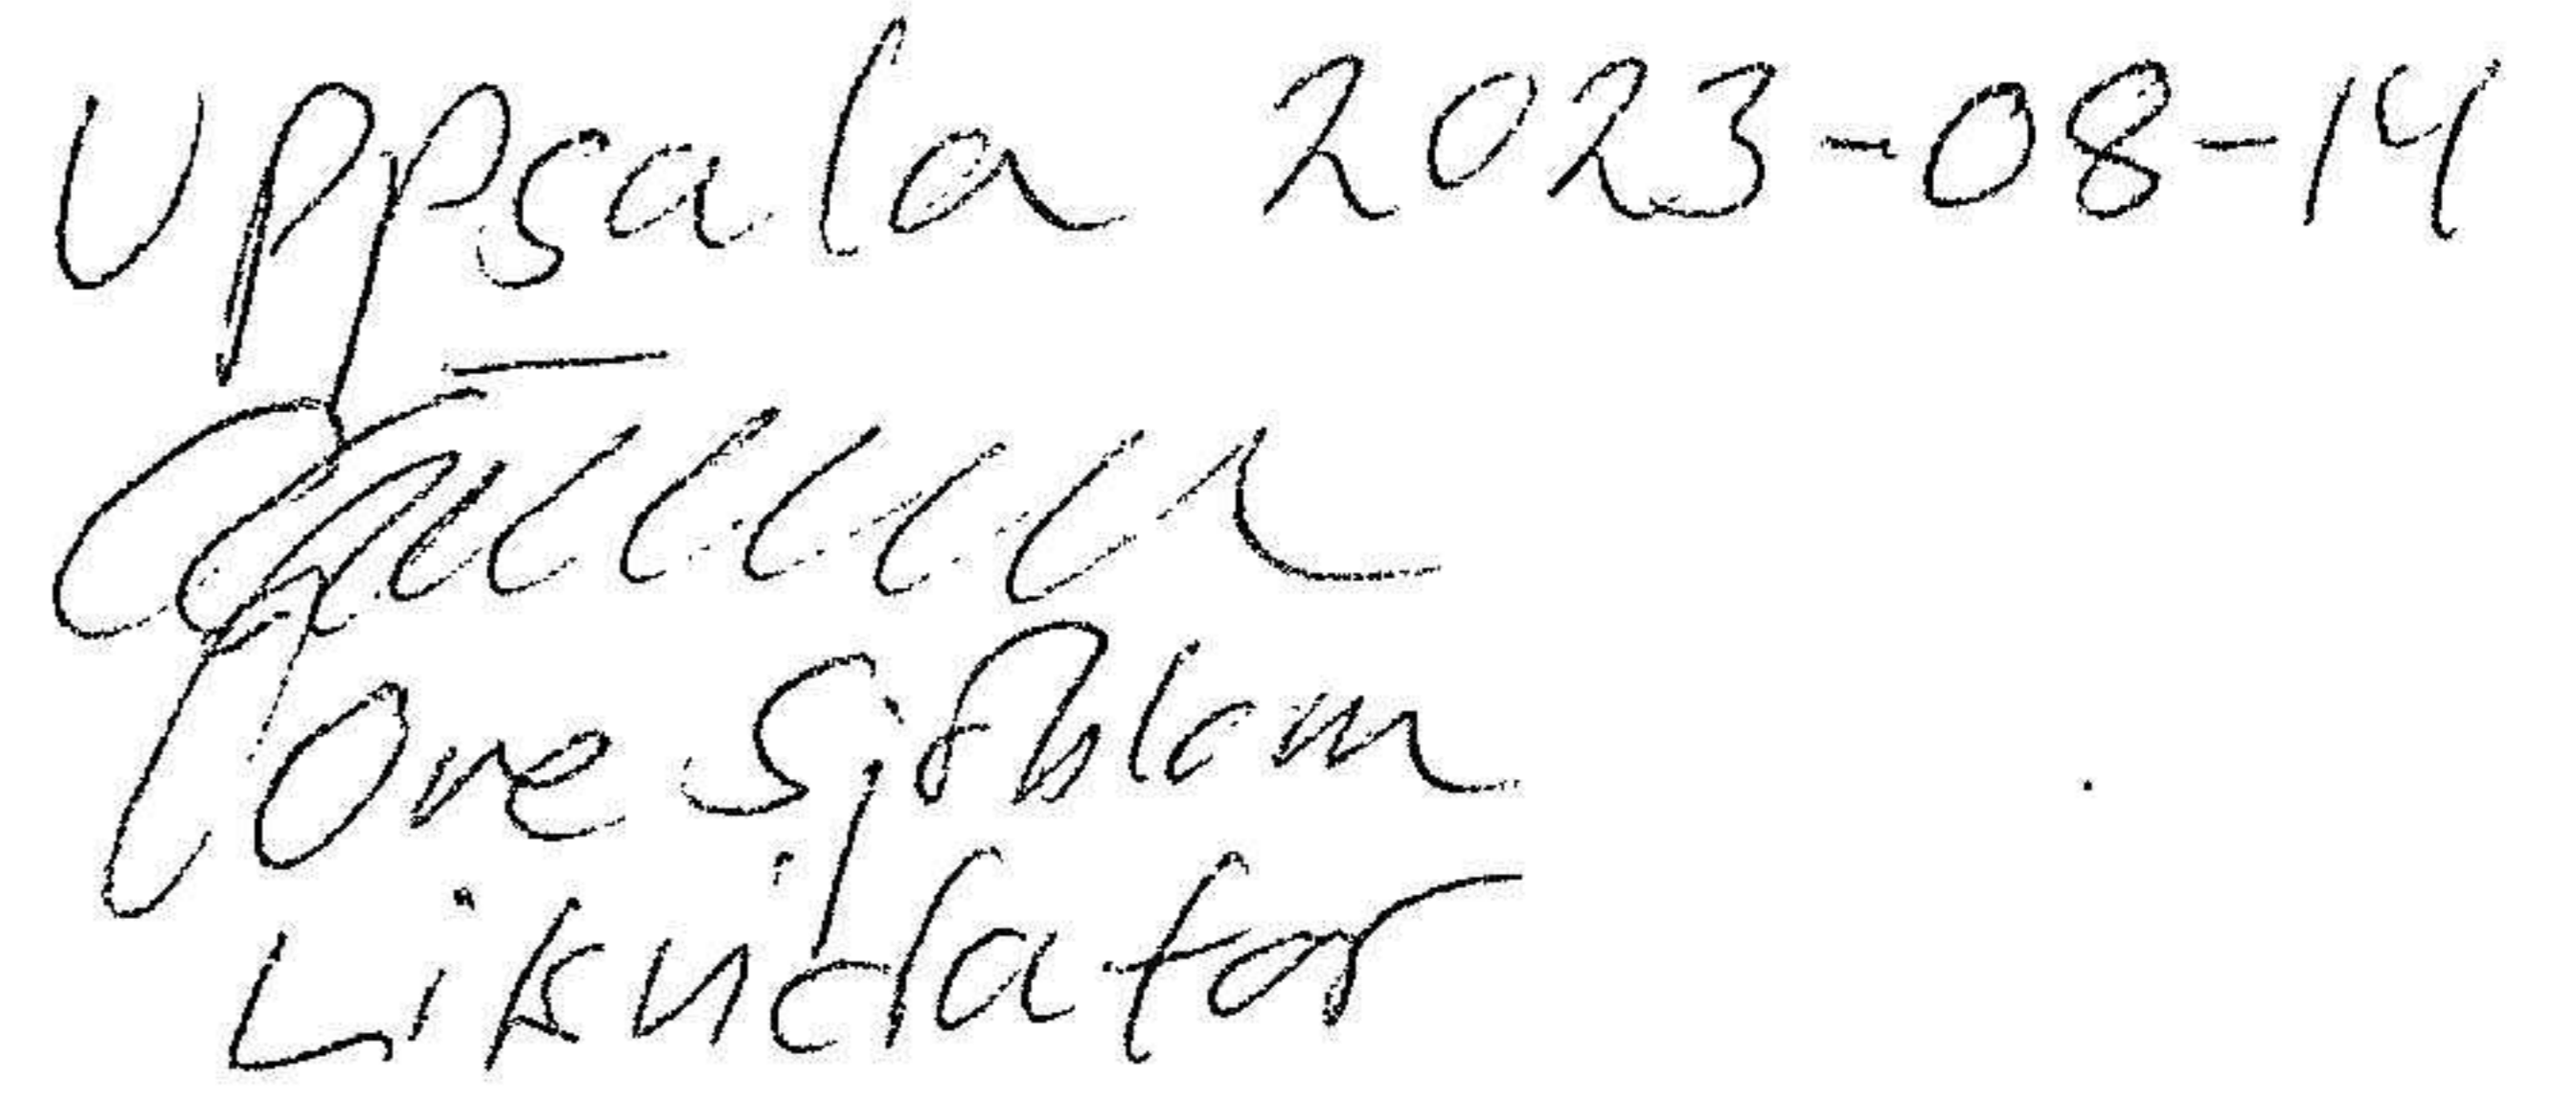 Uppsala 2023-08-14
Ove Sjöblom
Likvidator